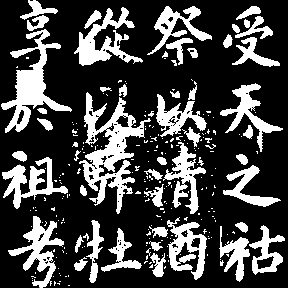 受天之祜
祭以清酒
從以騂牡
享於祖考